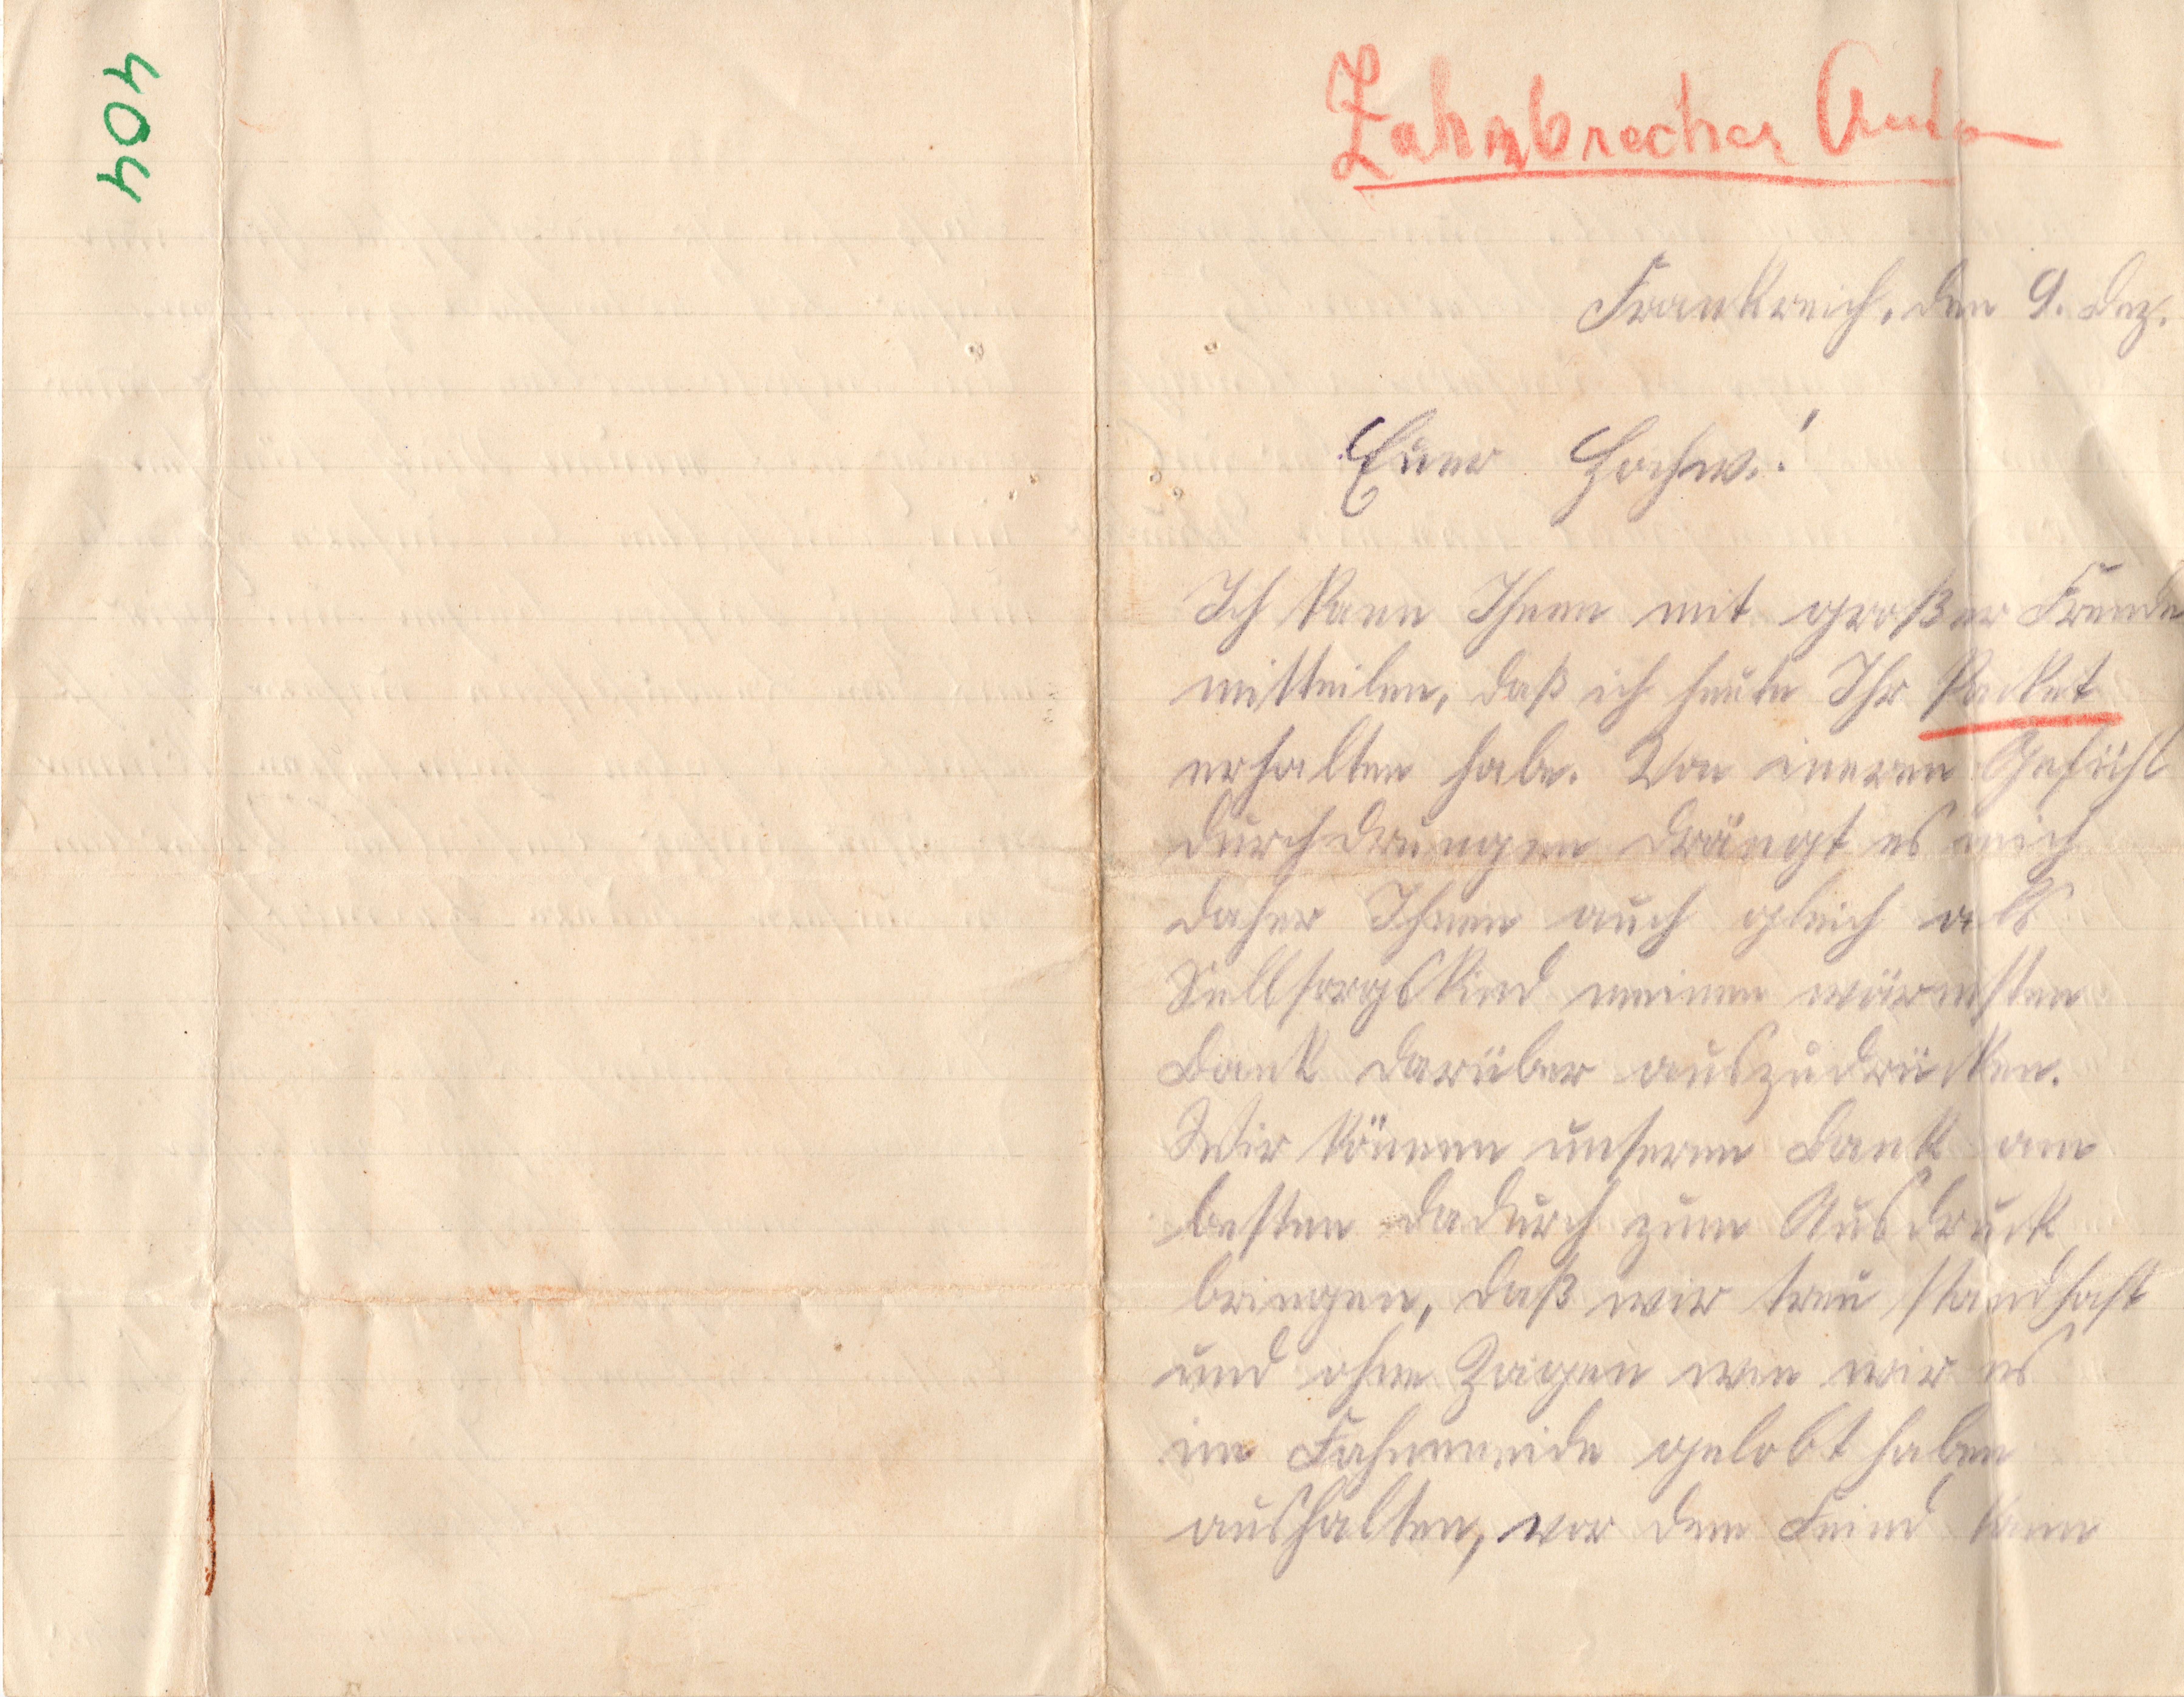 404
Zahnbrecher Anton
Frankreich, den 9. Dez.
Euer Hochw.!
Ich kann Ihnen mit großer Freude
mitteilen, daß ich heute Ihr Packet
erhalten habe. Von ineren Gefühl
durchdrungen drängt es mich
daher Ihnen auch gleich als
Sellsorgskind meinen wärmsten
Dank darüber auszudrücken.
Wir können unseren Dank am
besten dadurch zum Ausdruck
bringen, daß wir treu standhaft
und ohne Zagen wie wir es
im Fahneneide gelobt haben
aushalten, vor dem Feind kann